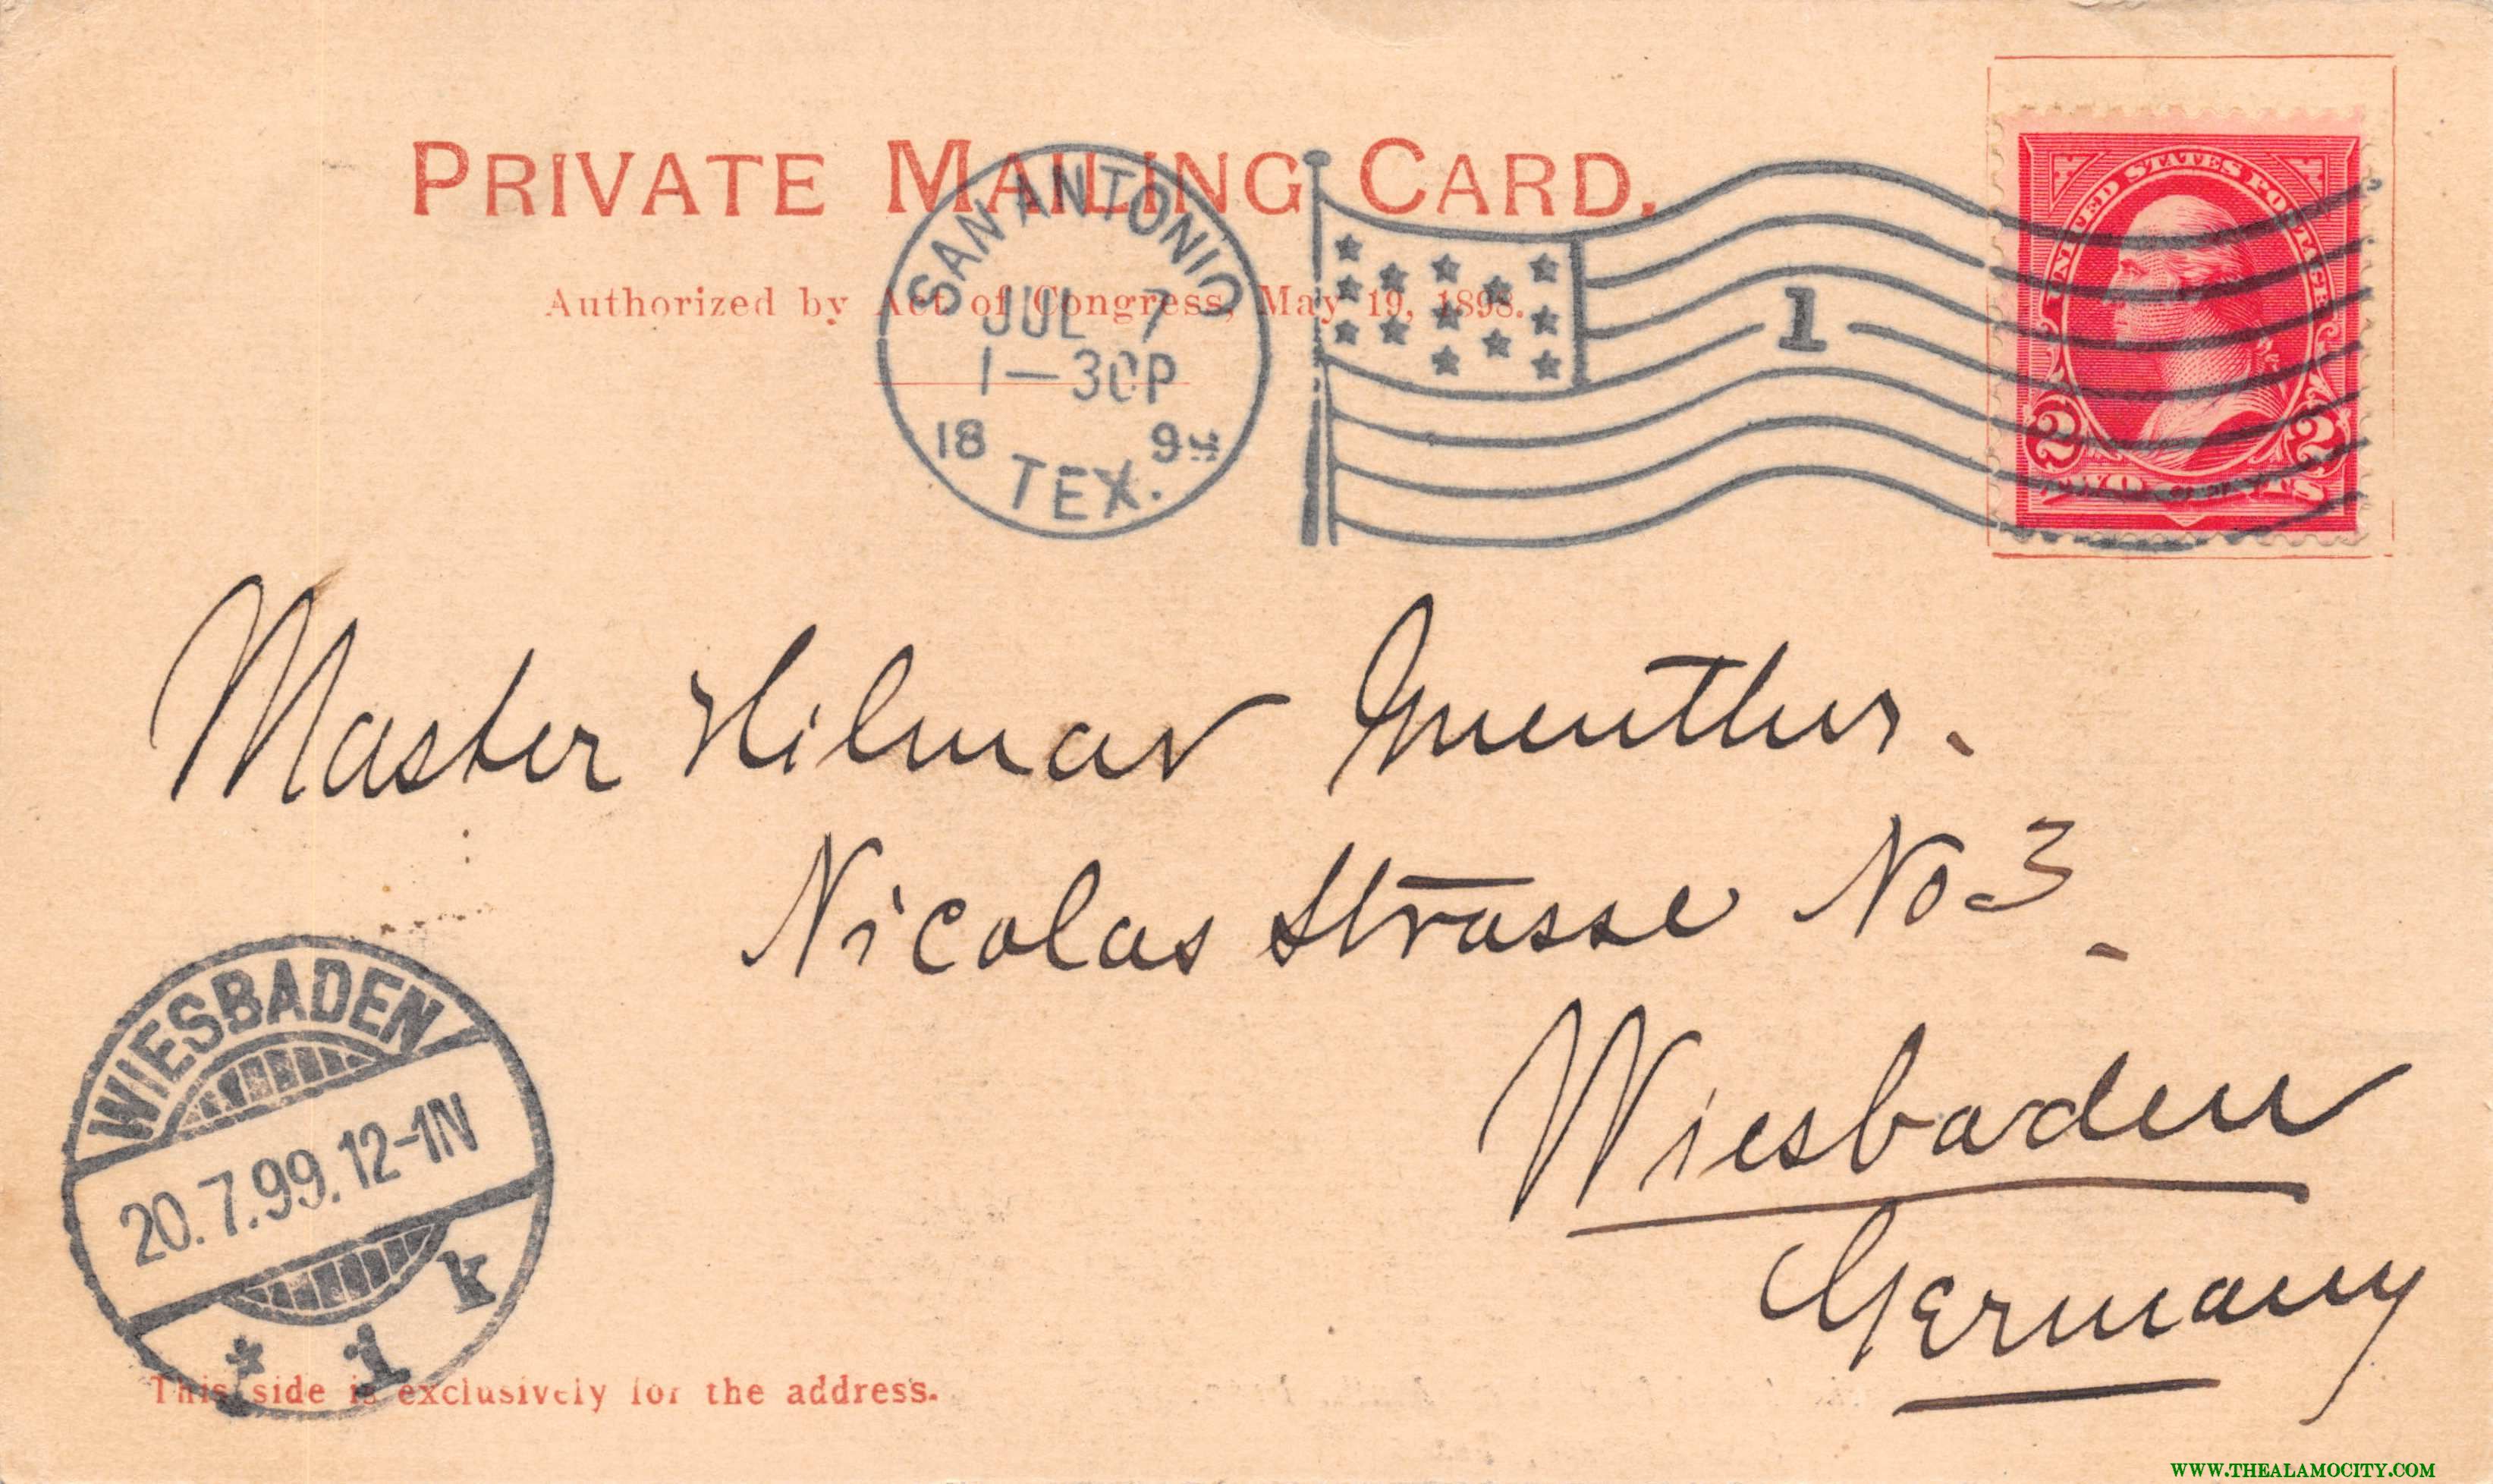 PRIVATE MAILING CARD.
Authorized by Act of Congress, May 19, 1898.
SAN ANTONIO
JUL 7
1-30P
18 99
TEX.
1
UNITED STATES POSTAGE
2 2
TWO CENTS
Master Hilmar Guenther.
Nicolas Strasse No 3
Wiesbaden
Germany
WIESBADEN
20.7.99.12-1N
* 1 k
This side is exclusively for the address.
WWW.THEALAMOCITY.COM